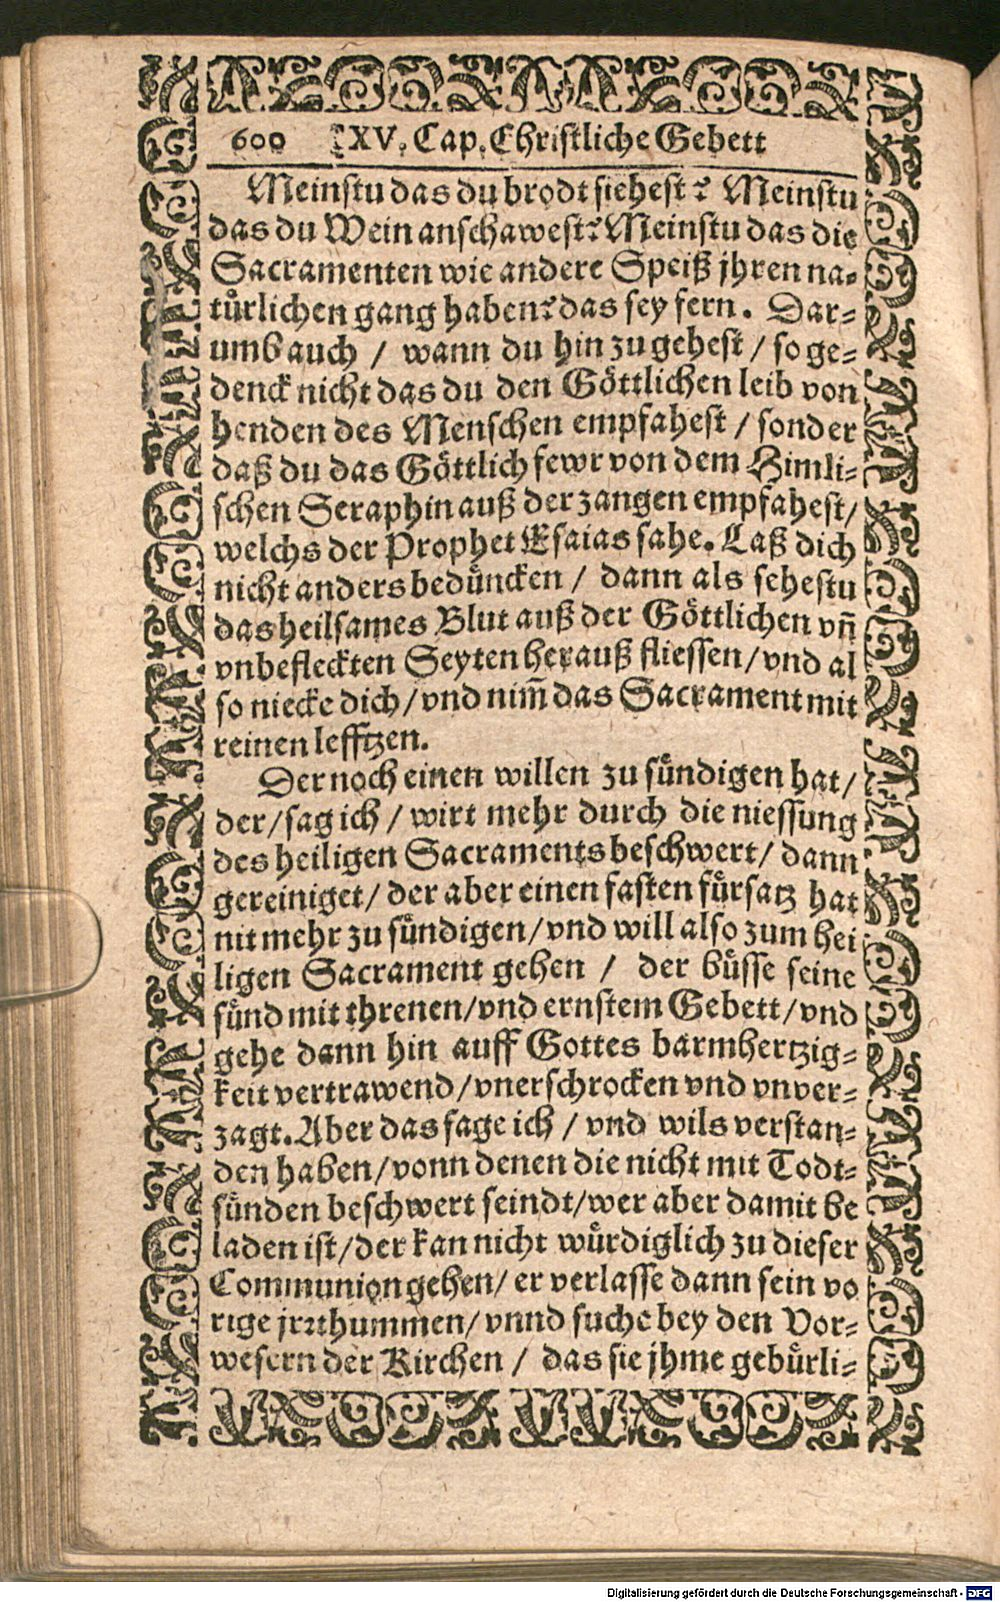 600 XV. Cap. Christliche Gebett
Meinstu das du brodt siehest? Meinstu
das du Wein anschawest? Meinstu das die
Sacramenten wie andere Speiß jhren na-
tuͤrlichen gang haben? das sey fern. Dar-
umb auch / wann du hin zu gehest / so ge-
denck nicht das du den Goͤttlichen leib von
henden des Menschen empfahest / sonder
daß du das Goͤttlich fewr von dem Himli-
schen Seraphin auß der zangen empfahest /
welchs der Prophet Esaias sahe. Laß dich
nicht anders beduͤncken / dann als sehestu
das heilsames Blut auß der Goͤttlichen vñ
vnbefleckten Seyten herauß fliessen / vnd al
so niecke dich / vnd nim̃ das Sacrament mit
reinen lefftzen.
Der noch einen willen zu suͤndigen hat /
der / sag ich / wirt mehr durch die niessung
des heiligen Sacraments beschwert / dann
gereiniget / der aber einen fasten fuͤrsatz hat
nit mehr zu suͤndigen / vnd will also zum hei
ligen Sacrament gehen / der buͤsse seine
suͤnd mit threnen / vnd ernstem Gebett / vnd
gehe dann hin auff Gottes barmhertzig-
keit vertrawend / vnerschrocken vnd vnver-
zagt. Aber das sage ich / vnd wils verstan-
den haben / vonn denen die nicht mit Todt-
suͤnden beschwert seindt / wer aber damit be
laden ist / der kan nicht wuͤrdiglich zu dieser
Communion gehen / er verlasse dann sein vo
rige jrrthummen / vnnd suche bey den Vor-
wesern der Kirchen / das sie jhme gebuͤrli-
Digitalisierung gefördert durch die Deutsche Forschungsgemeinschaft - DFG